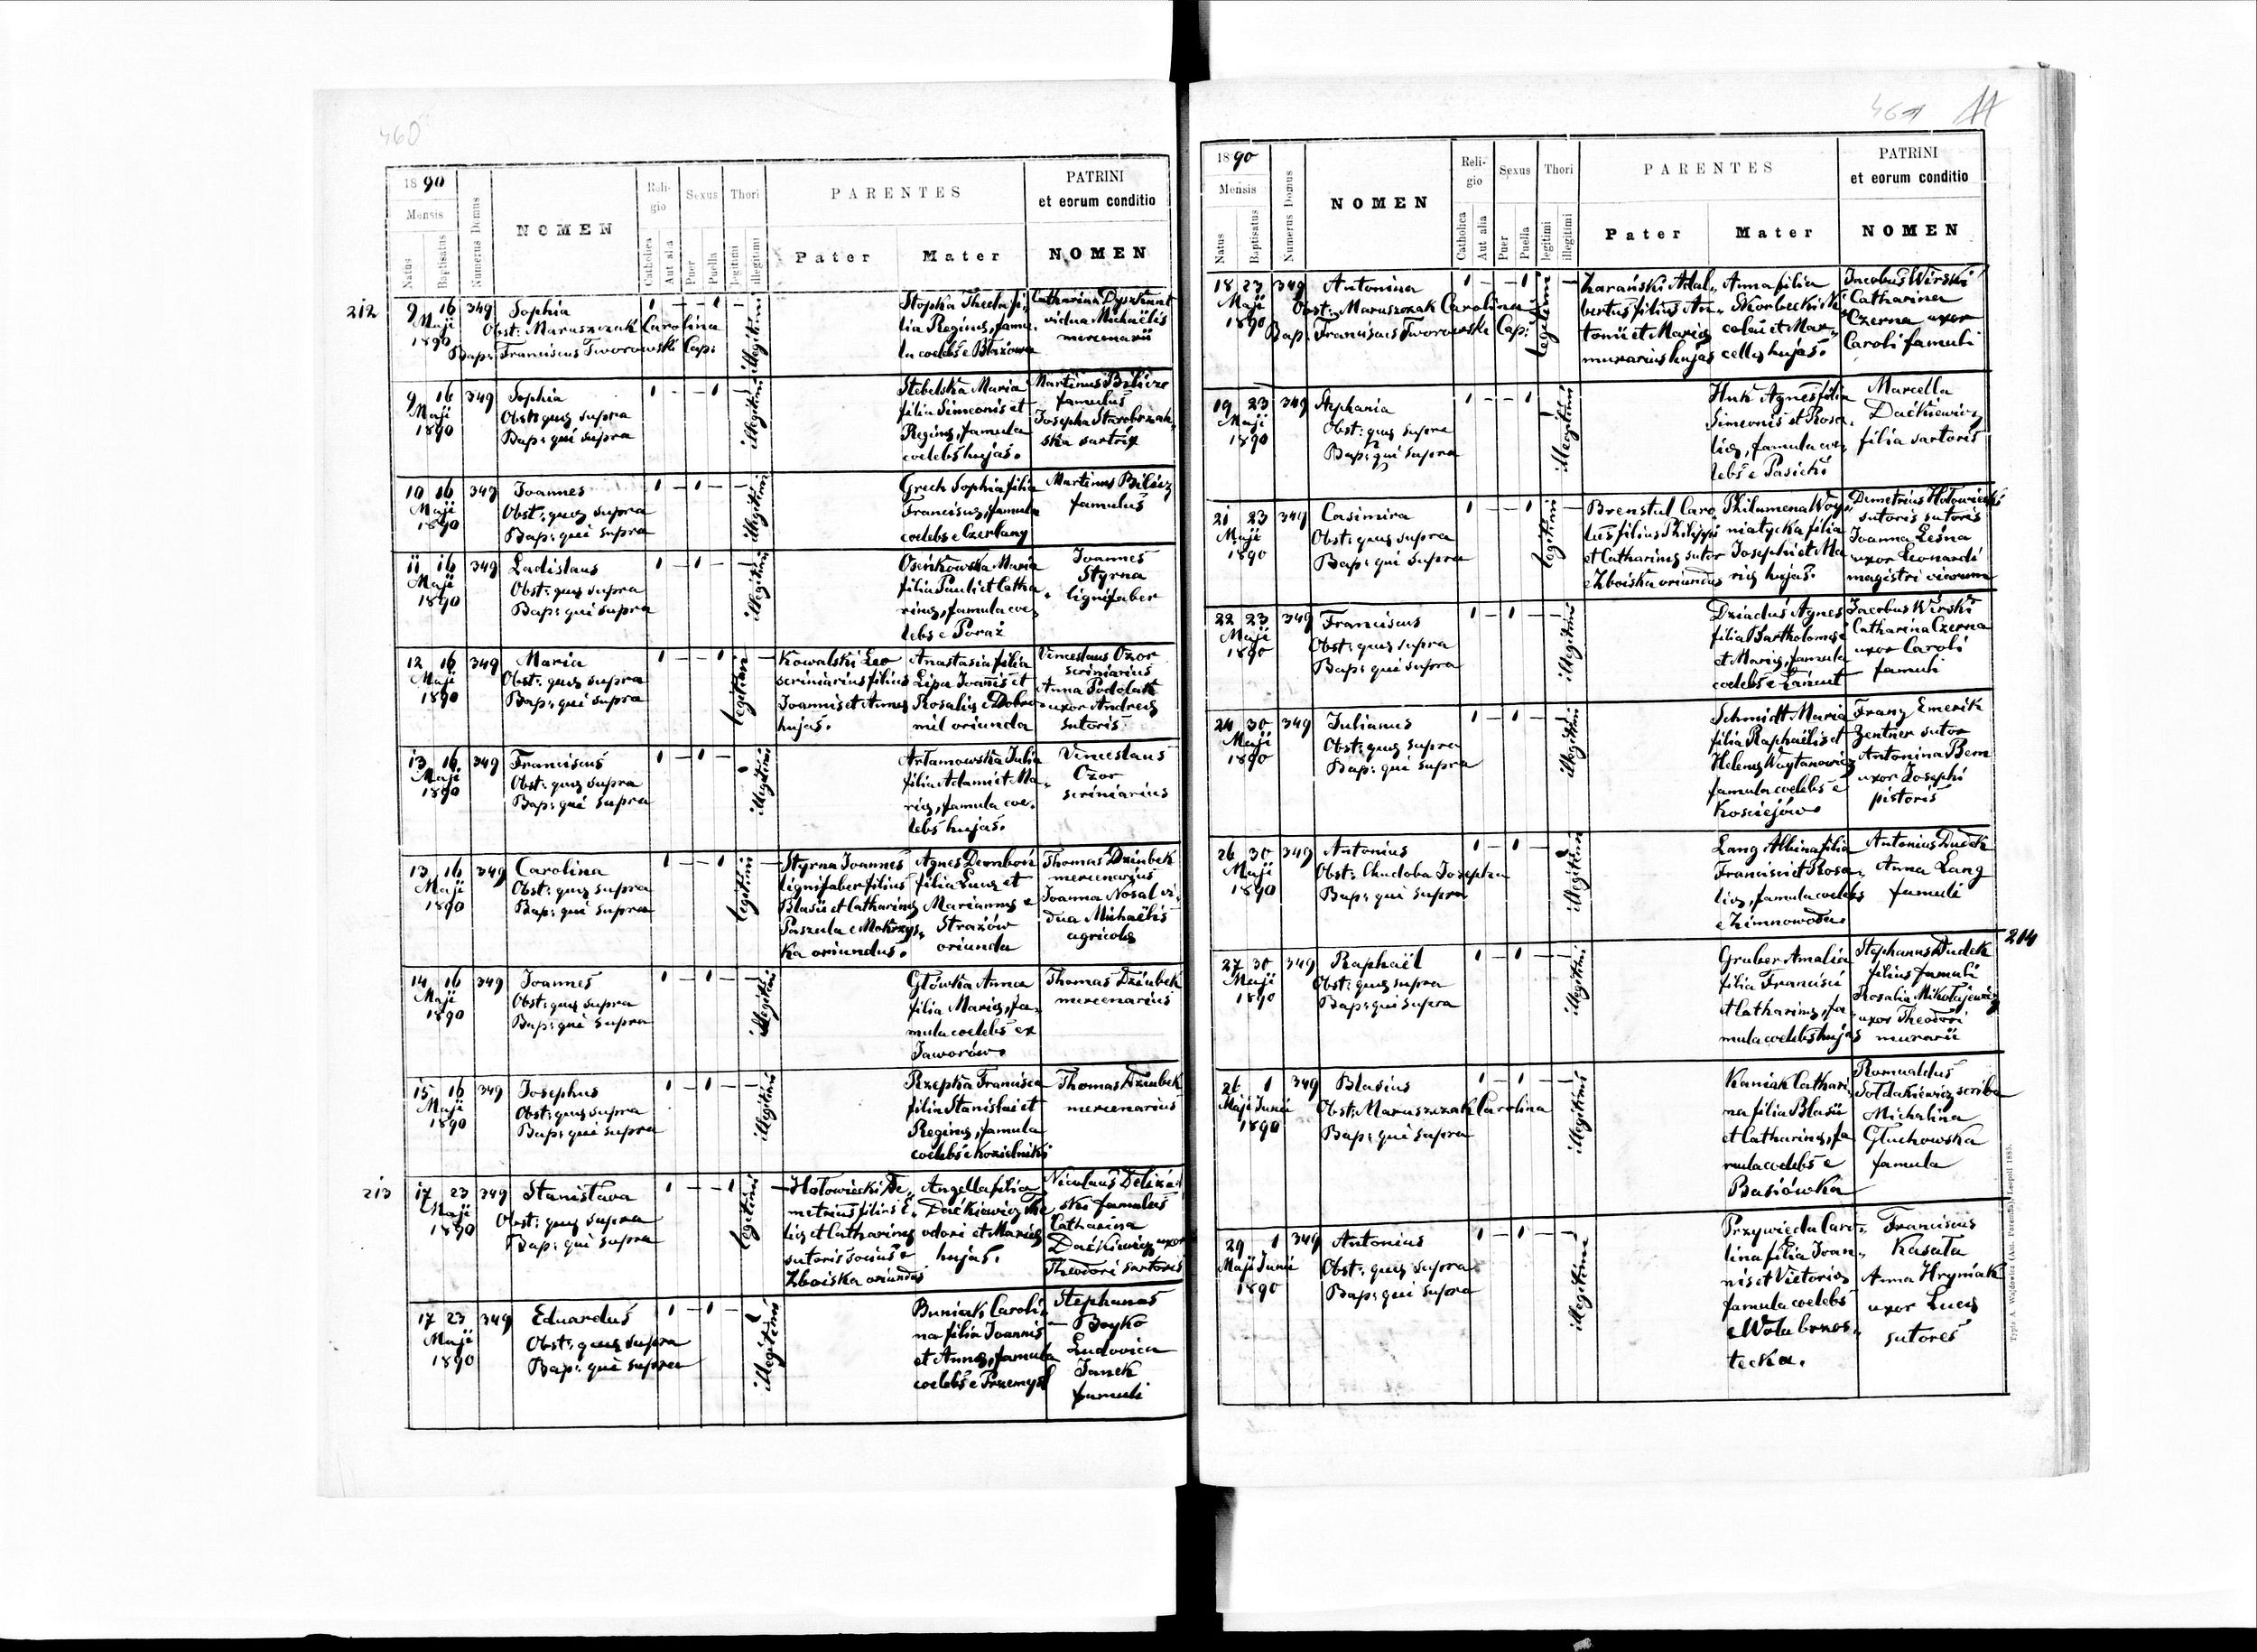 460
1890
Mensis
Natus
Baptisatus
Numerus Domus
NOMEN
Reli-
gio
Catholica
Aut alia
Sexus
Puer
Puella
Thori
legitimi
illegitimi
PARENTES
Pater
Mater
PATRINI
et eorum conditio
NOMEN
212
9 16 349 Sophia 1 – – 1 –
Maji
1890
Obst: Maruszczak Carolina
Bap: Franciscus Tworowski Cap:
illegitimi
Stopka Thecla fi-
lia Reginę, famu-
la coelebs e Błażowa
Catharina
vidua Michaëlis
mercenarii
9 16 349 Sophia 1 – – 1 –
Maji
1890
Obst: quę supra
Bap: qui supra
illegitimi
Stebelska Maria
filia Simeonis et
Reginę, famula
coelebs hujas.
Martinus Bilicz
famulus
Josepha
ska sartrix
10 16 349 Joannes 1 – 1 – –
Maji
1890
Obst: quę supra
Bap: qui supra
illegitimi
Grech Sophia filia
Franciscę, famula
coelebs e Czerlany
Martinus Bilicz
famulus
11 16 349 Ladislaus 1 – 1 – –
Maji
1890
Obst: quę supra
Bap: qui supra
illegitimi
Osińkowska Maria
filia Pauli et Catha-
rinę, famula coe-
lebs e Poraż
Joannes
Styrna
lignifaber
12 16 349 Maria 1 – – 1 –
Maji
1890
Obst: quę supra
Bap: qui supra
legitimi
Kowalski Leo
scriniarius filius
Joannis et Annę
hujas.
Anastasia filia
Lipa Joannis et
Rosalię e Dobro-
mil oriunda
Venceslaus Ozor
scriniarius
Anna Podolak
uxor Andreę
sutoris
13 16 349 Franciscus 1 – 1 – –
Maji
1890
Obst: quę supra
Bap: qui supra
illegitimi
Artamowska Julia
filia Adami et Ma-
rię, famula coe-
lebs hujas.
Venceslaus
Ozor
scriniarius
13 16 349 Carolina 1 – – 1 –
Maji
1890
Obst: quę supra
Bap: qui supra
legitimi
Styrna Joannes
lignifaber filius
Blasii et Catharinę
Paszula e Mokrzys-
ka oriundus.
Agnes Demboń
filia Lucę et
Mariannę e
Strażów
oriunda
Thomas Dziubek
mercenarius
Joanna Nosal vi-
dua Michaëlis
agricolę
14 16 349 Joannes 1 – 1 – –
Maji
1890
Obst: quę supra
Bap: qui supra
illegitimi
Główka Anna
filia Marię, fa-
mula coelebs ex
Jaworów.
Thomas Dziubek
mercenarius
15 16 349 Josephus 1 – 1 – –
Maji
1890
Obst: quę supra
Bap: qui supra
illegitimi
Rzepka Francisca
filia Stanislai et
Reginę, famula
coelebs e Kozielniki
Thomas Dziubek
mercenarius
213
17 23 349 Stanisłava 1 – – 1 –
Maji
1890
Obst: quę supra
Bap: qui supra
legitimi
Hołowiecki De-
metrius filius E-
lię et Catharinę
sutoris socius e
Zboiska oriundus
Angella filia
Daćkiewicz The-
odori et Marię
hujas.
Nicolaus
ski famulus
Catharina
Daćkiewicz uxor
Theodori sartoris
17 23 349 Eduardus 1 – 1 – –
Maji
1890
Obst: quę supra
Bap: qui supra
illegitimi
Buniak Caroli-
na filia Joannis
et Annę, famula
coelebs e Przemyśl
Stephanus
Boyko
Ludovica
Janek
famuli
461
1890
Mensis
Natus
Baptisatus
Numerus Domus
NOMEN
Reli-
gio
Catholica
Aut alia
Sexus
Puer
Puella
Thori
legitimi
illegitimi
PARENTES
Pater
Mater
PATRINI
et eorum conditio
NOMEN
18 23 349 Antonina 1 – – 1
Maji
1890
Obst: Maruszczak Carolina
Bap: Franciscus Tworowski Cap:
legitimi
Zarański Adal-
bertus filius An-
tonii et Marię
murarius hujas
Anna filia
Skorbecki Ni-
colai et Mar-
cellę hujas.
Jacobus Wirski
Catharina
Czerna uxor
Caroli famuli
19 23 349 Stephania 1 – – 1
Maji
1890
Obst: quę supra
Bap: qui supra
illegitimi
Huk Agnes filia
Simeonis et Rosa-
lię, famula coe-
lebs e Pasieki
Marcella
Daćkiewicz
filia sartoris
21 23 349 Casimira 1 – – 1
Maji
1890
Obst: quę supra
Bap: qui supra
legitimi
Brenstul Caro-
lus filius Philippi
et Catharinę sutor
e Zboiska oriundus
Philumena Woy-
niatycka filia
Josephi et Ma-
rię hujas.
Demetrius Hołowiecki
sutoris sutoris
Joanna Leśna
uxor Leonardi
magistri viarum
22 23 349 Franciscus 1 – 1 – –
Maji
1890
Obst: quę supra
Bap: qui supra
illegitimi
Dziaduś Agnes
filia Bartholomęi
et Marię, famula
coelebs e Łańcut
Jacobus Wirski
Catharina Czerna
uxor Caroli
famuli
24 30 349 Julianus 1 – 1 – –
Maji
1890
Obst: quę supra
Bap: qui supra
illegitimi
Schmidt Maria
filia Raphaëlis et
Helenę Woytanowicz
famula coelebs e
Kosciejów
Franz Emerik
Zentner sutor
Antonina Bem
uxor Josephi
pistoris
26 30 349 Antonius 1 – 1 – –
Maji
1890
Obst: Chudoba Josepha
Bap: qui supra
illegitimi
Lang Albina filia
Francisci et Rosa-
lię, famula coelebs
e Zimnowoda
Antonius Dudek
Anna Lang
famuli
214
27 30 349 Raphaël 1 – 1 – –
Maji
1890
Obst: quę supra
Bap: qui supra
illegitimi
Gruber Amalia
filia Francisci
et Catharinę, fa-
mula coelebs hujas
Stephanus Dudek
filius famuli
Rosalia Mikołajewicz
uxor Theodori
murarii
26 1 349 Blasius 1 – 1 – –
Maji Junii
1890
Obst: Maruszczak Carolina
Bap: qui supra
illegitimi
Kaniak Cathari-
na filia Blasii
et Catharinę, fa-
mula coelebs e
Basiówka
Romualdus
Sołdakiewicz scriba
Michalina
Głuchowska
famula
29 1 349 Antonius 1 – 1 – –
Maji Junii
1890
Obst: quę supra
Bap: qui supra
illegitimi
Przywięda Caro-
lina filia Joan-
nis et Victorię
famula coelebs
e Wola brzos-
tecka.
Franciscus
Kasała
Anna Hryniak
uxor Lucę
sutoris